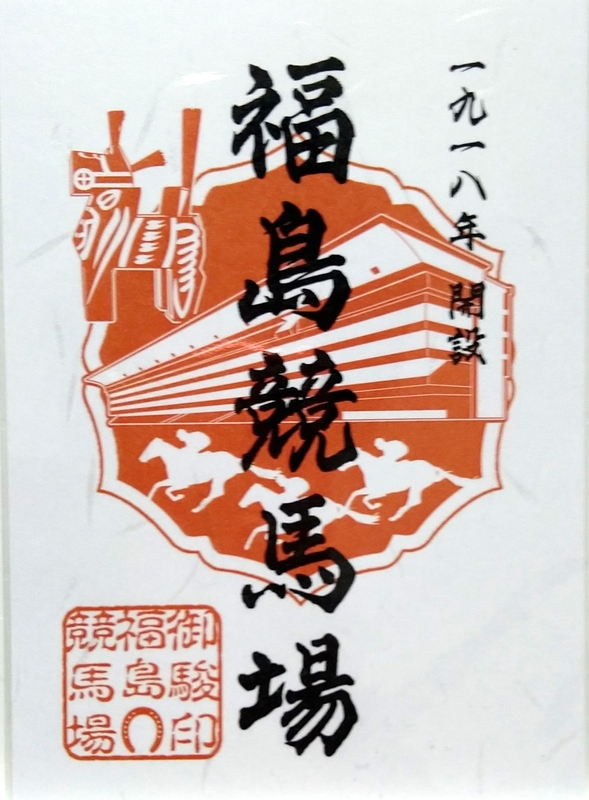 一九一八年 開設
福島競馬場
御駿印
福島
競馬場